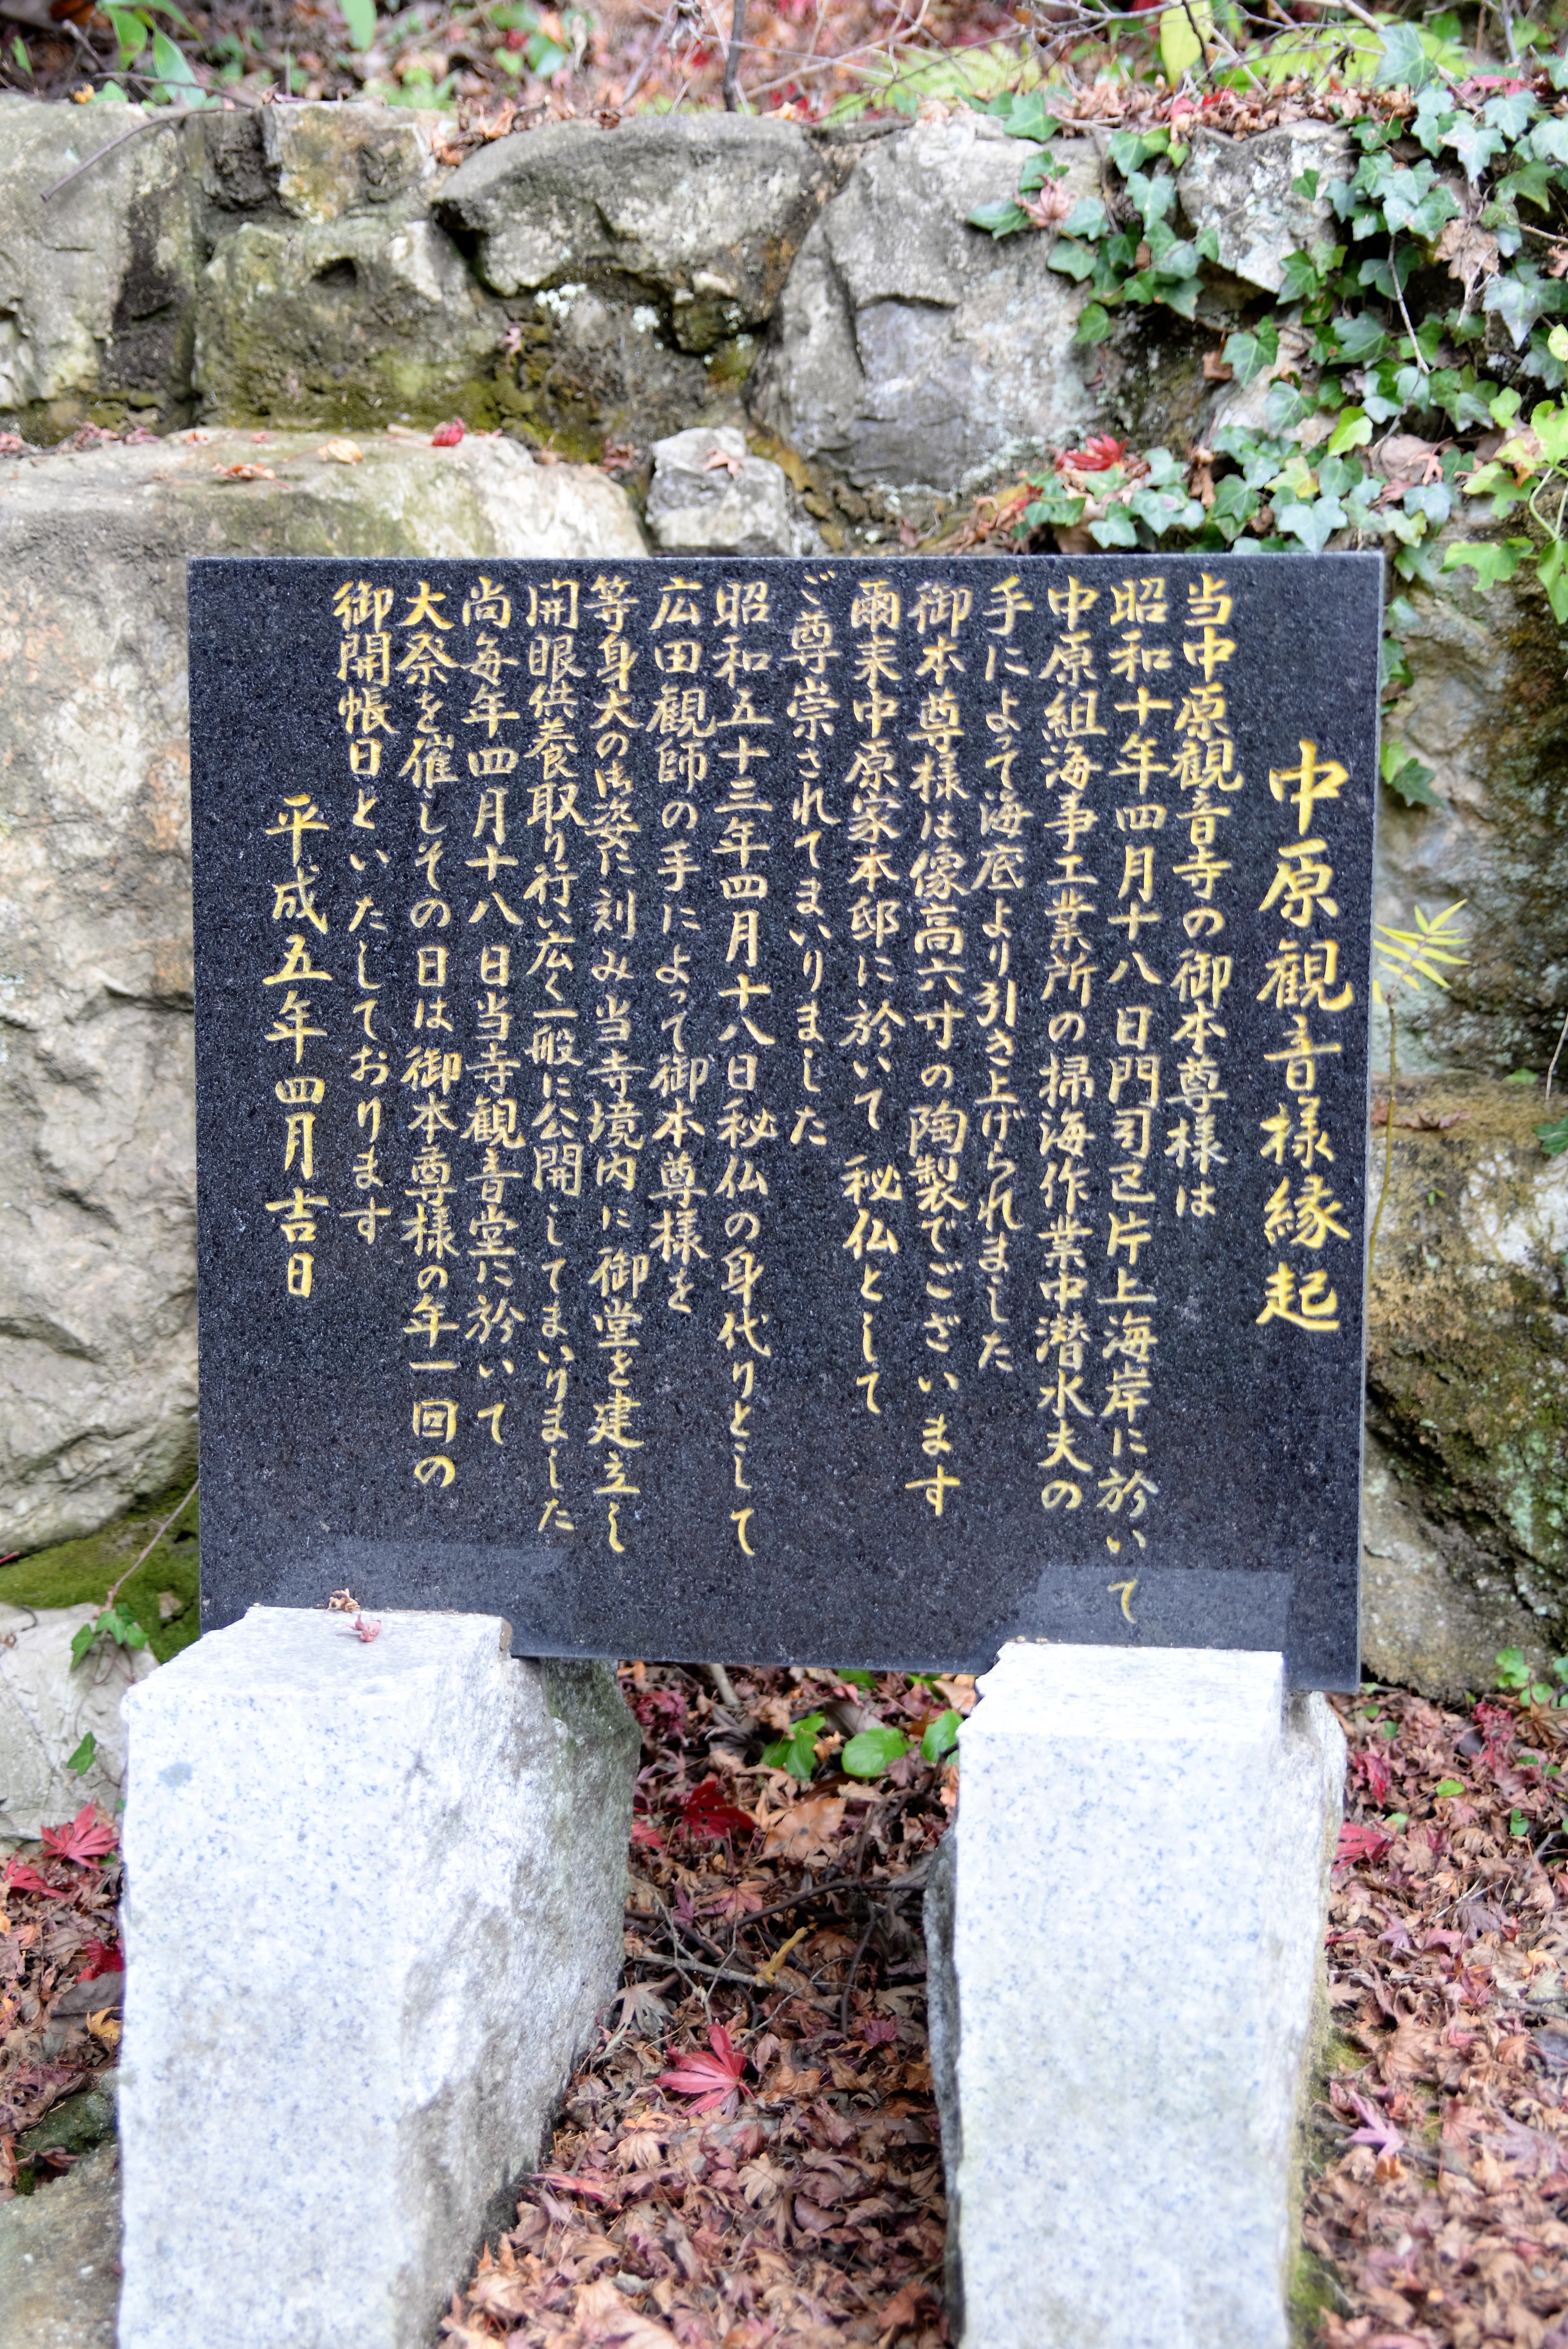 中原観音様縁起
当中原観音寺の御本尊様は
昭和十年四月十八日門司区片上海岸に於いて
中原組海事工業所の掃海作業中潜水夫の
手によって海底より引き上げられました
御本尊様は像高六寸の陶製でございます
爾来中原家本邸に於いて秘仏として
ご尊崇されてまいりました
昭和五十三年四月十八日秘仏の身代りとして
広田観師の手によって御本尊様を
等身大の御姿に刻み当寺境内に御堂を建立し
開眼供養取り行い広く一般に公開してまいりました
尚毎年四月十八日当寺観音堂に於いて
大祭を催しその日は御本尊様の年一回の
御開帳日といたしております
平成五年四月吉日